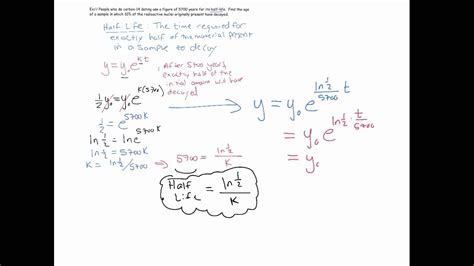 Ex// People who do carbon 14 dating use a figure of 5700 years for its half-life. Find the age
of a sample in which 10% of the radioactive nuclei originally present have decayed.
Half Life: The time required for
exactly half of the material present
in a sample to decay
y = y₀e^{kt}
After 5700 years,
exactly half of the
initial amount will have
decayed
½y₀ = y₀e^{K(5700)}
½ = e^{5700K}
ln½ = lne^{5700K}
ln½ = 5700K
K = ln½/5700
5700 = ln½/K
Half Life = ln½/K
y = y₀e^{ln½/5700 t}
= y₀e^{ln½· t/5700}
= y₀